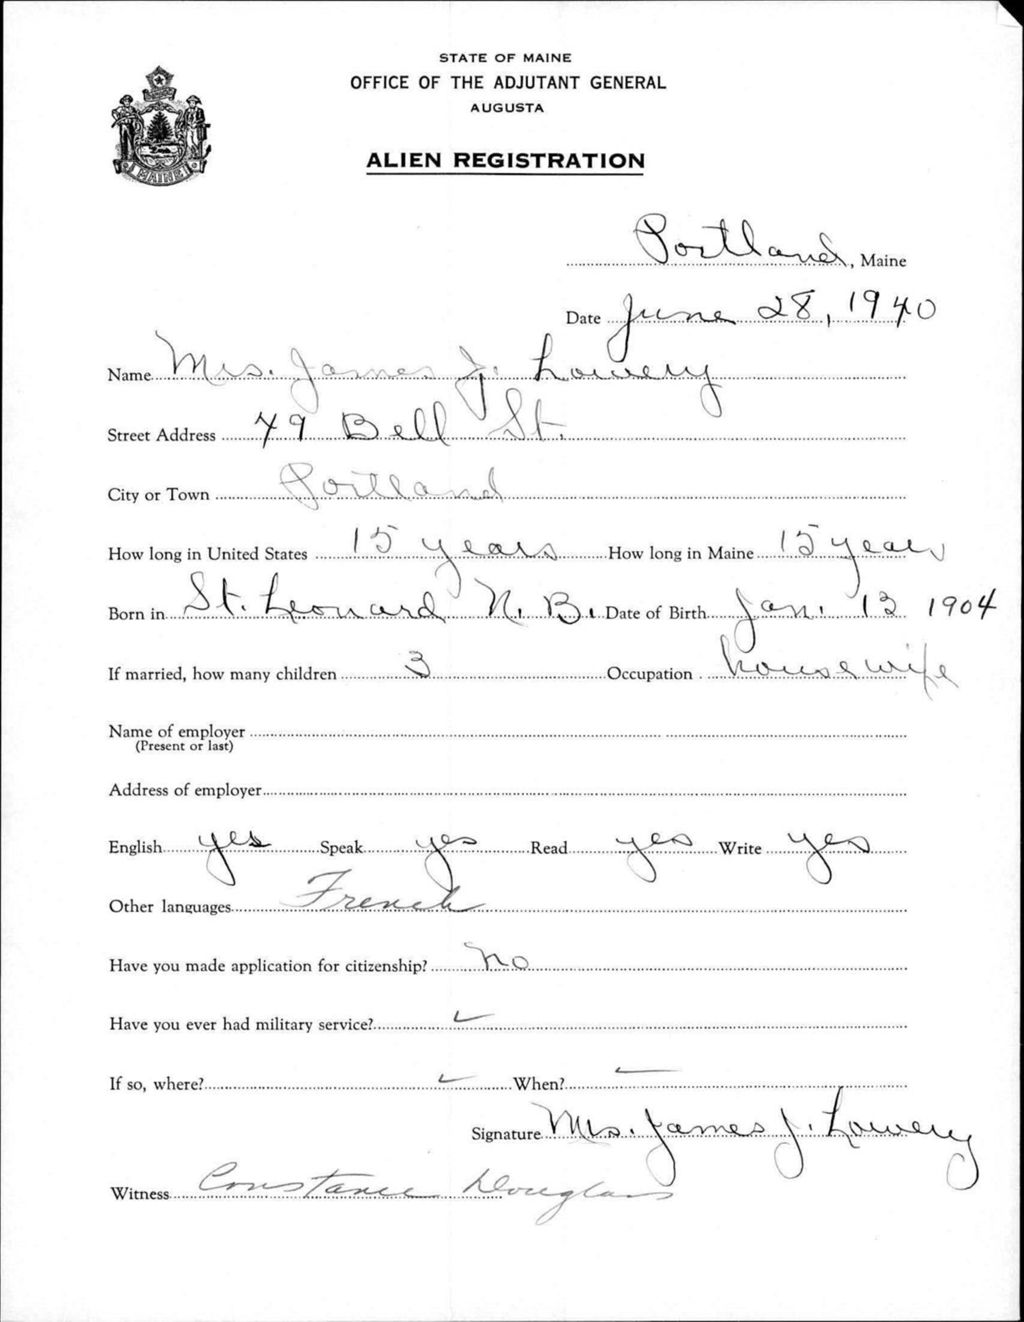 STATE OF MAINE
OFFICE OF THE ADJUTANT GENERAL
AUGUSTA
MAINE
ALIEN REGISTRATION
Portland, Maine
Date June 28, 1940
Name Mrs. James J. Lowery
Street Address 49 Bell St.
City or Town Portland
How long in United States 15 years How long in Maine 15 years
Born in St. Leonard N. B. Date of Birth Jan. 13 1904
If married, how many children 3 Occupation housewife
Name of employer
(Present or last)
Address of employer
English yes Speak yes Read yes Write yes
Other languages French
Have you made application for citizenship? No
Have you ever had military service? -
If so, where? - When? -
Signature Mrs. James J. Lowery
Witness Constance Douglass